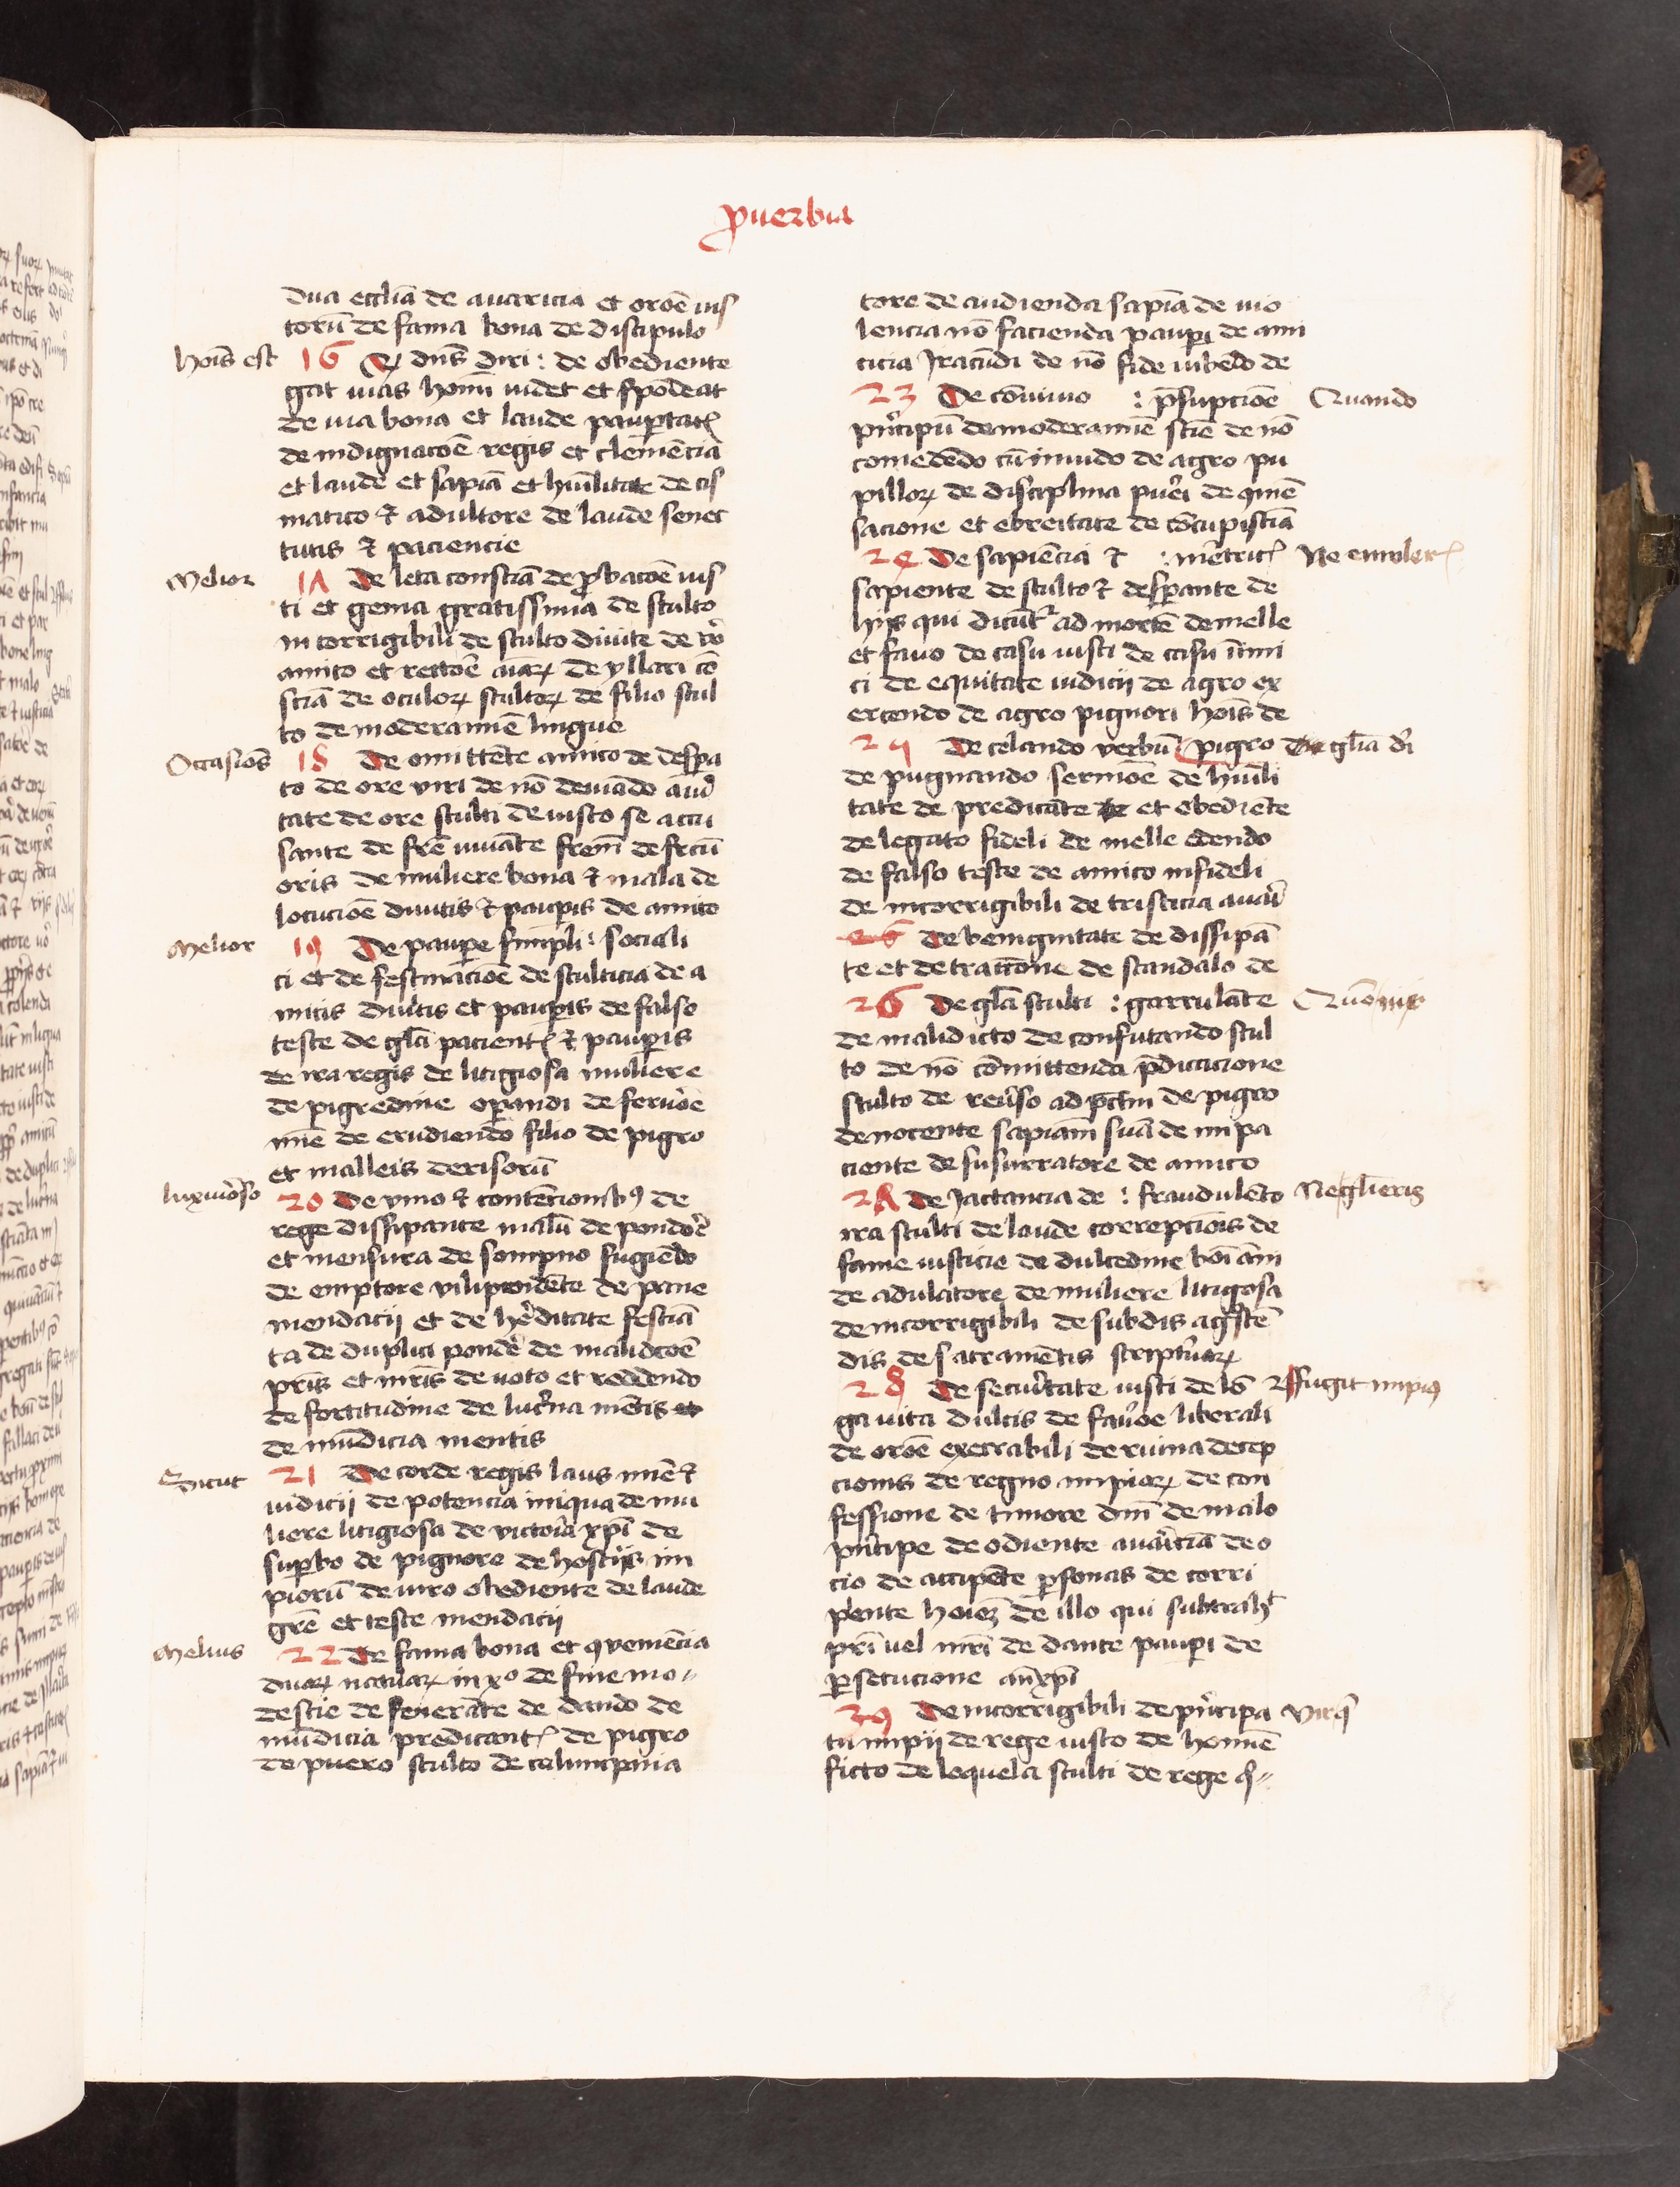 ꝓuerbia
dua eccliā de auaricia et oroē ius
torū de fama bona de discipulo
Hoīs est 16 Q dn̄s diri : de obediente
gat uias hoīm uidet et spōdeat
de uia bona et laude paupertatꝭ
de indignacōe regis et clemēcia
et laude et sapiā et hūilitate de cis
matico et adultore de laude senec
tutis et paciencie
Melior 17 De leta consciā de ꝓbacōe ius
ti et gema gratissima de stulto
in corrigibili de stulto diuite de ūo
amico et rectoē aīarꝝ de yllari cō
sciā de oculorꝝ stultorꝝ de filio stul
to de moderamīe lingue
Occasiōs 18 De omittēte amico de despa
to de ore viri de nō deuiādo a ūi
tate de ore stulti de iusto se accu
sante de frē iuuāte frem̄ de frcū
oris de muliere bona et mala de
locucōe diuitis et pauꝑis de amico
Melior 19 De pauꝑe simpli : sociali
ci et de festinacioē de stulticia de a
micis diuītis et pauꝑis de falso
teste de gl̄ia pacientꝭ et pauꝑis
de ira regis de litigiosa muliere
de pigredine oꝑandi de feruōe
mīe de erudiendo filio de pigro
et malleis derisorū
luxuiōso 20 De vino et contēcionibꝰ de
rege dissipante malū de pondōe
et mensura de sompno fugiēdo
de emptore vilipendēte de pane
mendacij et de hēditate festīa
ta de duplici pondē de malidcōe
pris et mr̄is de uoto et reddendo
de fortitudīne de lucīna mētis et
de mūdicia mentis
Sicut 21 De corde regis laus mīe et
iudicij de potencia iniqua de mu
liere litigiosa de victoīa xp̄i de
suꝑbo de pignore de hostijs im
piorū de uiro obediente de laude
grē et teste mendacij
Melius 22 De fama bona et qveniēcia
duarꝝ naturarꝝ in xo de fine mo-
destie de fenerāte de dando de
mūdicia predicantꝭ de pigro
de puero stulto de calumpnia
tore de audienda sapiā de uio
lencia nō facienda pauꝑi de ami
cicia Jracūdi de nō fide iubēdo de
23 De cōuiuio : p̄supcioē Quando
pn̄cipū de moderamīe sciē de nō
comedēdo cū inuido de agro pu
pillorꝝ de disciplina puēi de qmē
sacione et ebreitate de cōcupisciā
24 De sapiēcia et : mētricꝭ Ne emulerꝭ
sapiente de stulto et despante de
hijs qui dicūtr ad mortē de melle
et fauo de casu iusti de casu inimi
ci de equitate iudicij de agro ex
ercendo de agro pignori hoīs de
25 De celando verbū pigro De gl̄ia di
de pugnando sermōe de hūili
tate de predicāte et obediēte
de legato fideli de melle edendo
de falso teste de amico infideli
de incorrigibili de tristicia auaī
26 De benignitate de dissipā
te et detractione de scandalo de
26 De gl̄ia stulti : garrulāte Quōnis
de malidicto de confutando stul
to de nō cōmittenda p̄dicacione
stulto de reūso ad pctm̄ de pigro
de nocente sapiam̄ suā de impa
ciente de susurratore de amico
27 De Jactancia de : fraudulēto Neglieris
ira stulti de laude correpciōis de
fame iusticie de dulcedine boī aīm
de adulatore de muliere litigosa
de incorrigibili de subdis agscē
dis de sacramētis scripturarꝝ
28 De secuītate iusti de lō Effugit impiꝰ
ga uita dultis de fauōe liberali
de oroē execrabili de ruina decep
cionis de regno impiorꝝ de con
fessione de timore dnī de malo
pn̄cipe de odiente auaīciā de o
cio de accipēte ꝑsonas de corri
piente hoiēz de illo qui subtraht
prī uel mr̄i de dante pauꝑi de
ꝑsecucione anxp̄i
29 De incorrigibili de pn̄cipa Virqꝫ
tu impij de rege iusto de homīe
ficto de loquela stulti de rege q-